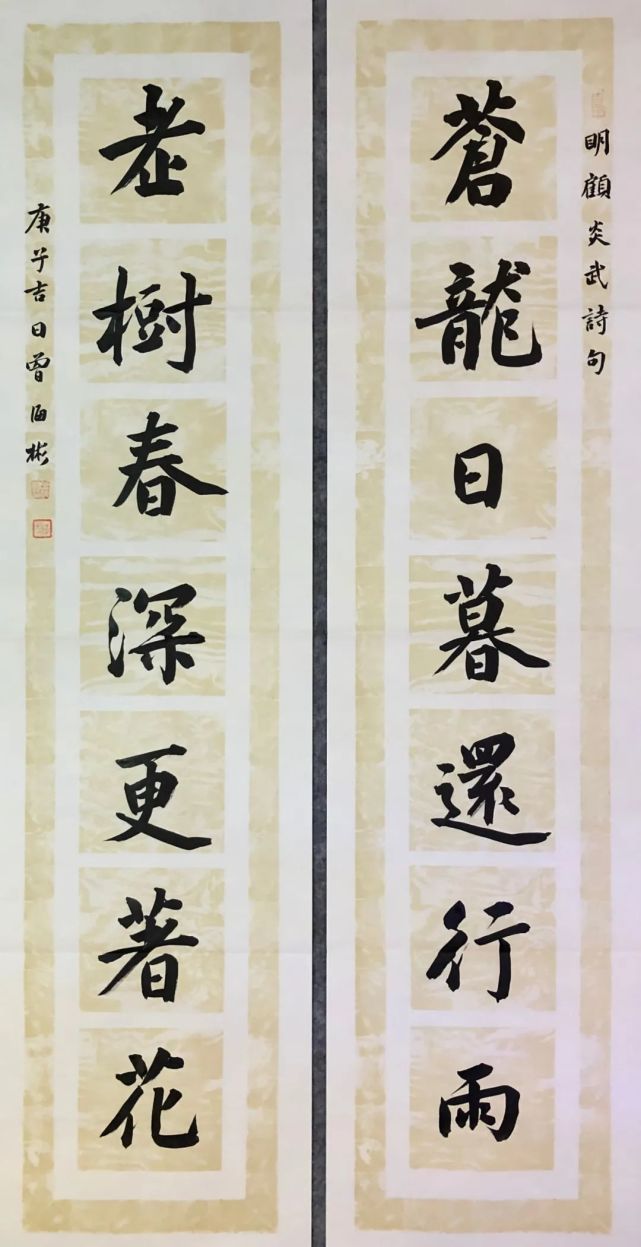 明顧炎武詩句
蒼龍日暮還行雨
老樹春深更著花
庚子吉日曾海彬